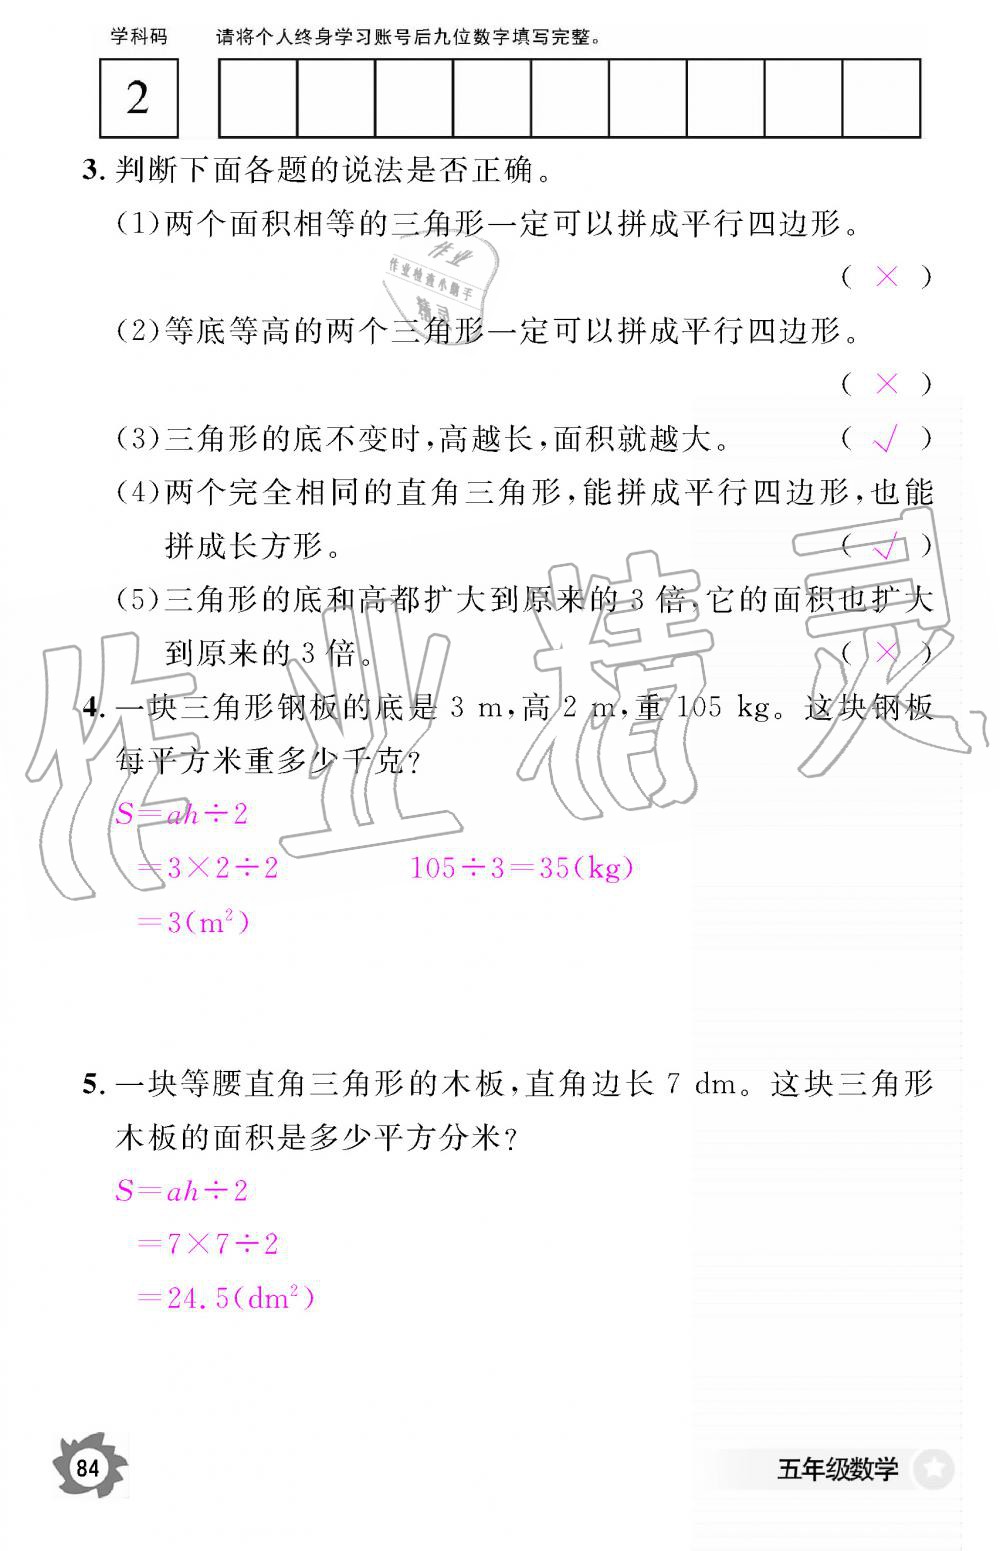 学科码 请将个人终身学习账号后九位数字填写完整。
2
3. 判断下面各题的说法是否正确。
(1)两个面积相等的三角形一定可以拼成平行四边形。
( × )
(2)等底等高的两个三角形一定可以拼成平行四边形。
( × )
(3)三角形的底不变时,高越长,面积就越大。 ( √ )
(4)两个完全相同的直角三角形,能拼成平行四边形,也能
拼成长方形。 ( √ )
(5)三角形的底和高都扩大到原来的 3 倍,它的面积也扩大
到原来的 3 倍。 ( × )
4. 一块三角形钢板的底是 3 m,高 2 m,重 105 kg。这块钢板
每平方米重多少千克?
S=ah÷2
=3×2÷2 105÷3=35(kg)
=3(m²)
5. 一块等腰直角三角形的木板,直角边长 7 dm。这块三角形
木板的面积是多少平方分米?
S=ah÷2
=7×7÷2
=24.5(dm²)
84 五年级数学
作业
作业检查小助手
精灵
作业精灵